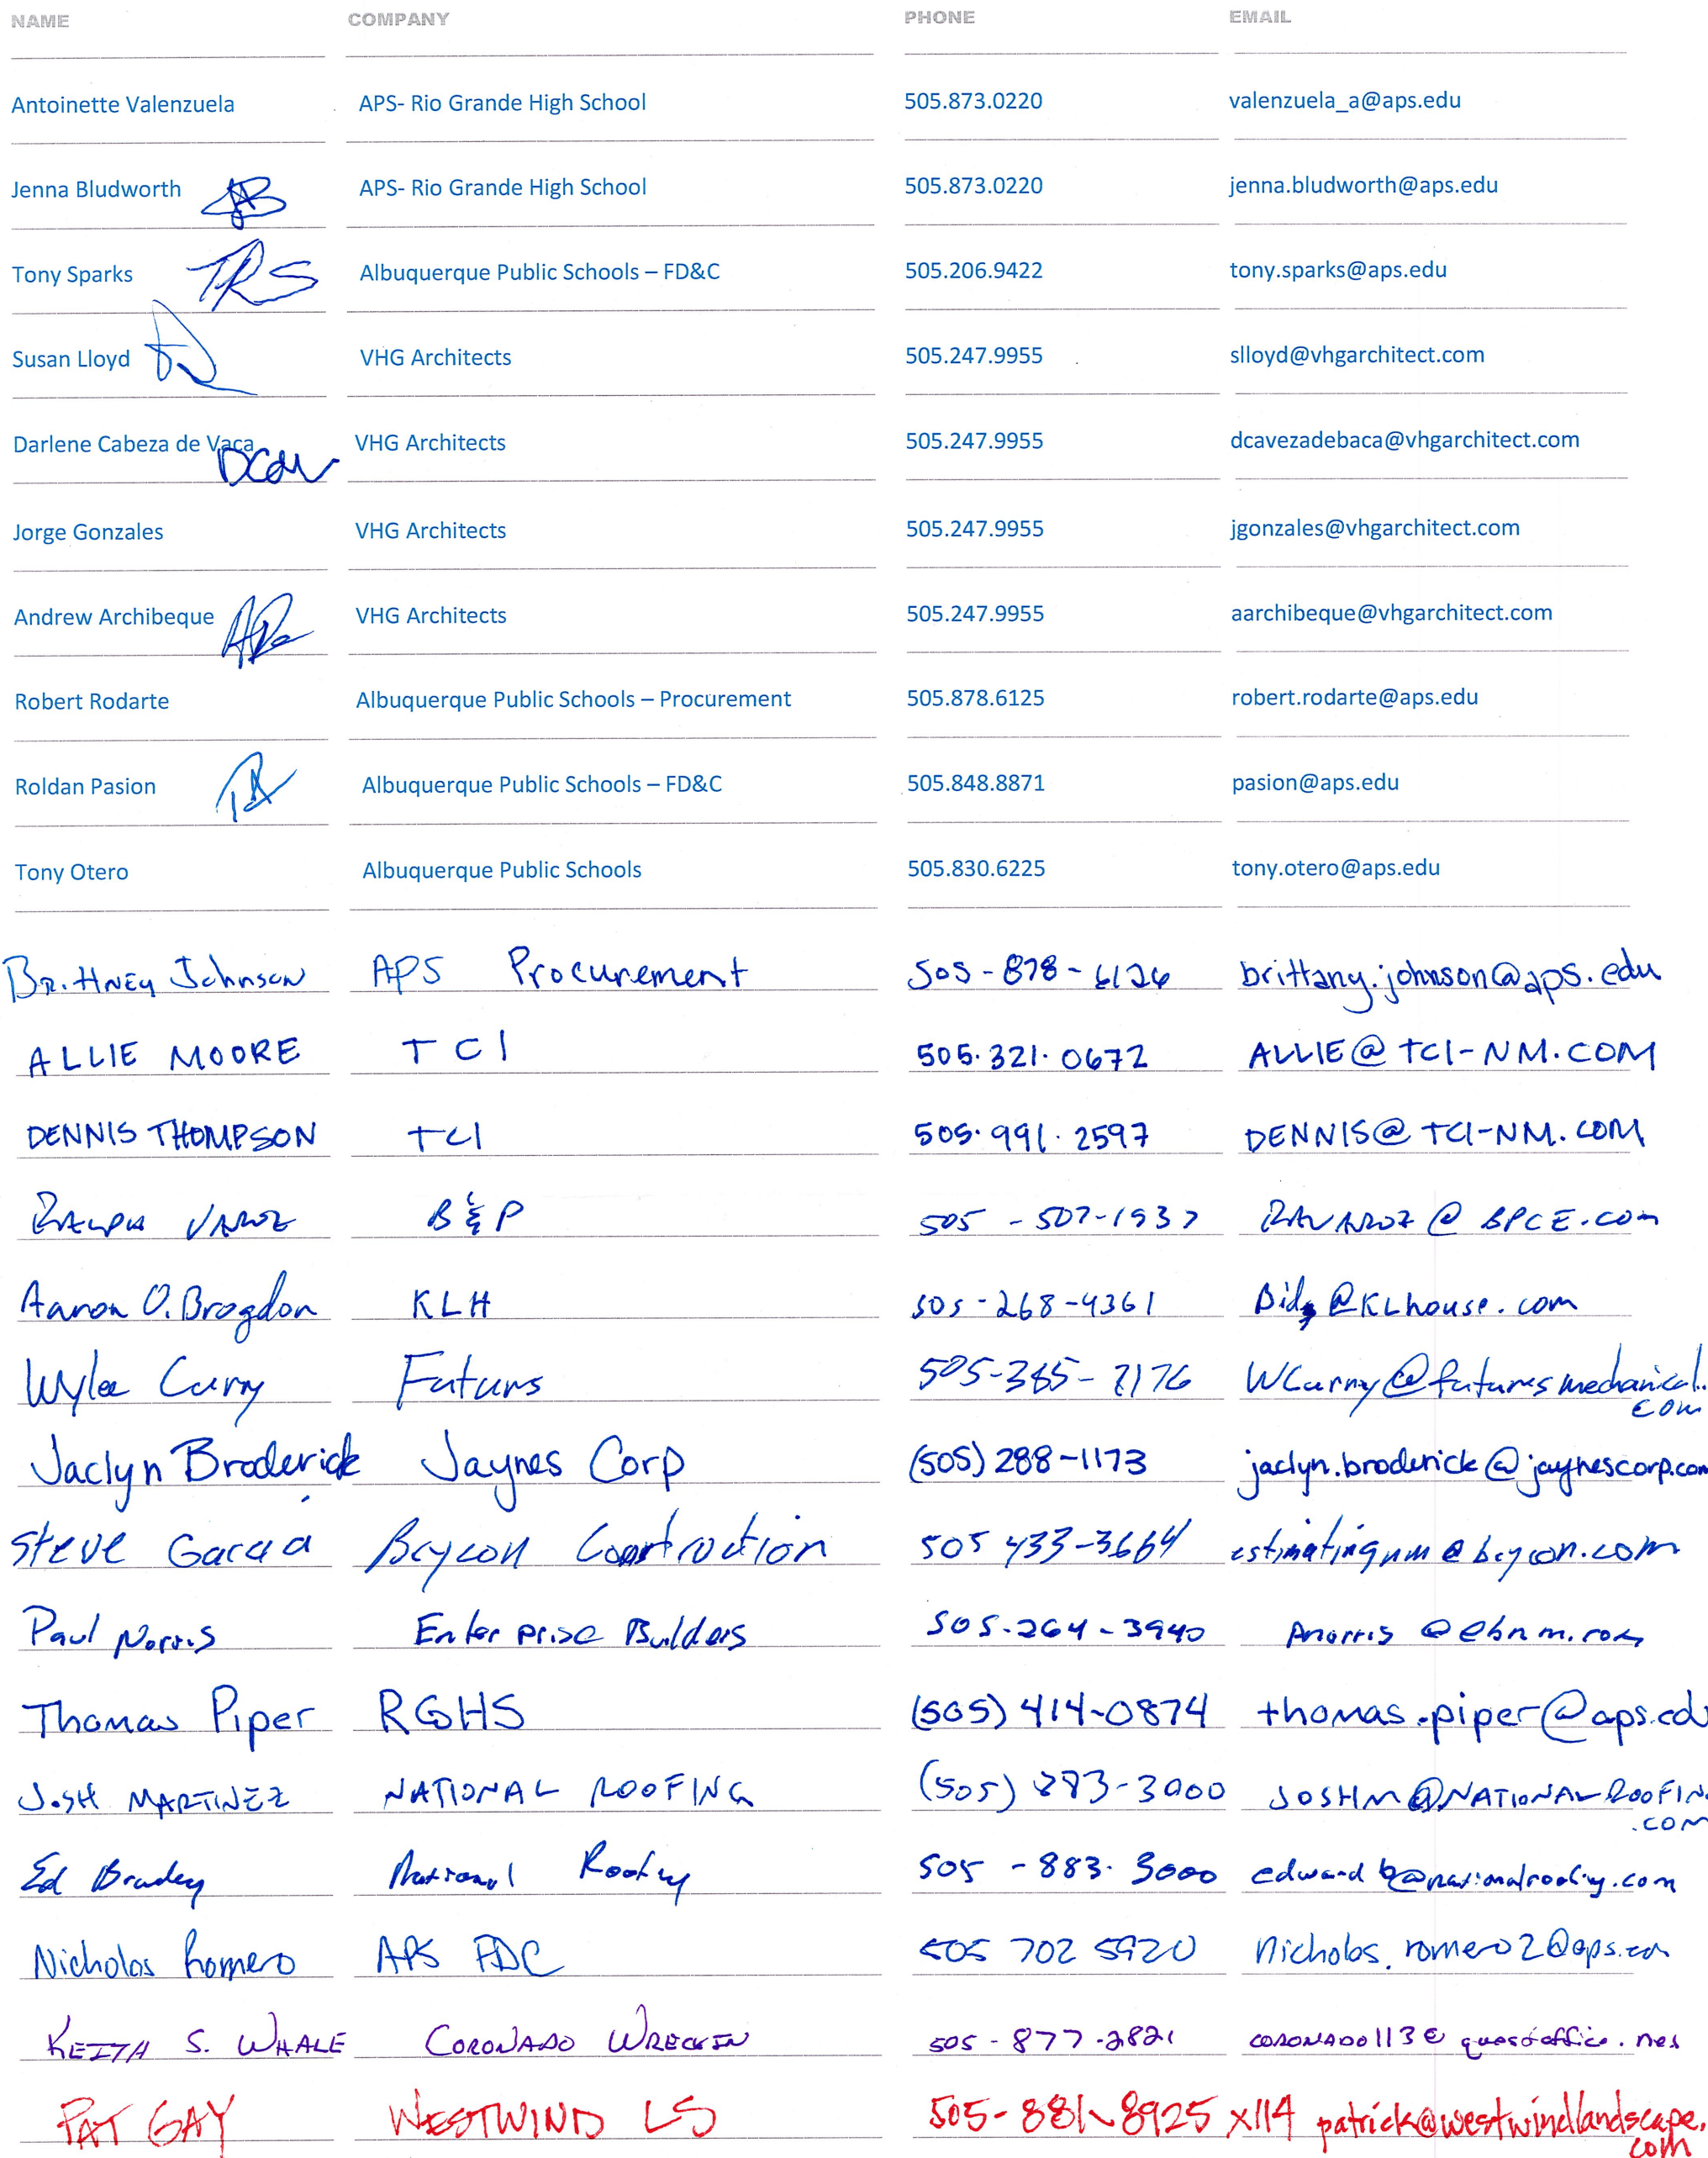 NAME COMPANY PHONE EMAIL
Antoinette Valenzuela APS- Rio Grande High School 505.873.0220 valenzuela_a@aps.edu
Jenna Bludworth APS- Rio Grande High School 505.873.0220 jenna.bludworth@aps.edu
Tony Sparks TRS Albuquerque Public Schools – FD&C 505.206.9422 tony.sparks@aps.edu
Susan Lloyd VHG Architects 505.247.9955 slloyd@vhgarchitect.com
Darlene Cabeza de Vaca DCdV VHG Architects 505.247.9955 dcavezadebaca@vhgarchitect.com
Jorge Gonzales VHG Architects 505.247.9955 jgonzales@vhgarchitect.com
Andrew Archibeque VHG Architects 505.247.9955 aarchibeque@vhgarchitect.com
Robert Rodarte Albuquerque Public Schools – Procurement 505.878.6125 robert.rodarte@aps.edu
Roldan Pasion Albuquerque Public Schools – FD&C 505.848.8871 pasion@aps.edu
Tony Otero Albuquerque Public Schools 505.830.6225 tony.otero@aps.edu
Johnson APS Procurement 505-878-6126 brittany.johnson@aps.edu
ALLIE MOORE TCI 505.321.0672 ALLIE@TCI-NM.COM
DENNIS THOMPSON TCI 505.991.2597 DENNIS@TCI-NM.COM
RALPH B&P 505-507-1937
Aaron O. Brogdon KLH 505-268-4361 Bids@KLhouse.com
Curry 505-385-
com
Jaclyn Broderick Jaynes Corp (505) 288-1173 jaclyn.broderick@jaynescorp.com
Steve Garcia Brycon Construction 505 433-3664 estimatingnm@brycon.com
Paul Norris Enterprise Builders 505-264-3940 Pnorris@ebnm.com
Thomas Piper RGHS (505) 414-0874 thomas.piper@aps.edu
JOSH MARTINEZ NATIONAL ROOFING (505) 883-3000 JOSHM@NATIONALROOFING
.COM
Ed Bradley National Roofing 505-883-3000 edwardb@nationalroofing.com
Nicholas Romero APS FDC 505 702 5920 Nicholas.romero2@aps.edu
KEITH S. WHALE CORONADO WRECKIN 505-877-2821 CORONADO113@questoffice.net
PAT GAY WESTWIND LS 505-881-8925 x114 patrick@westwindlandscape.
com